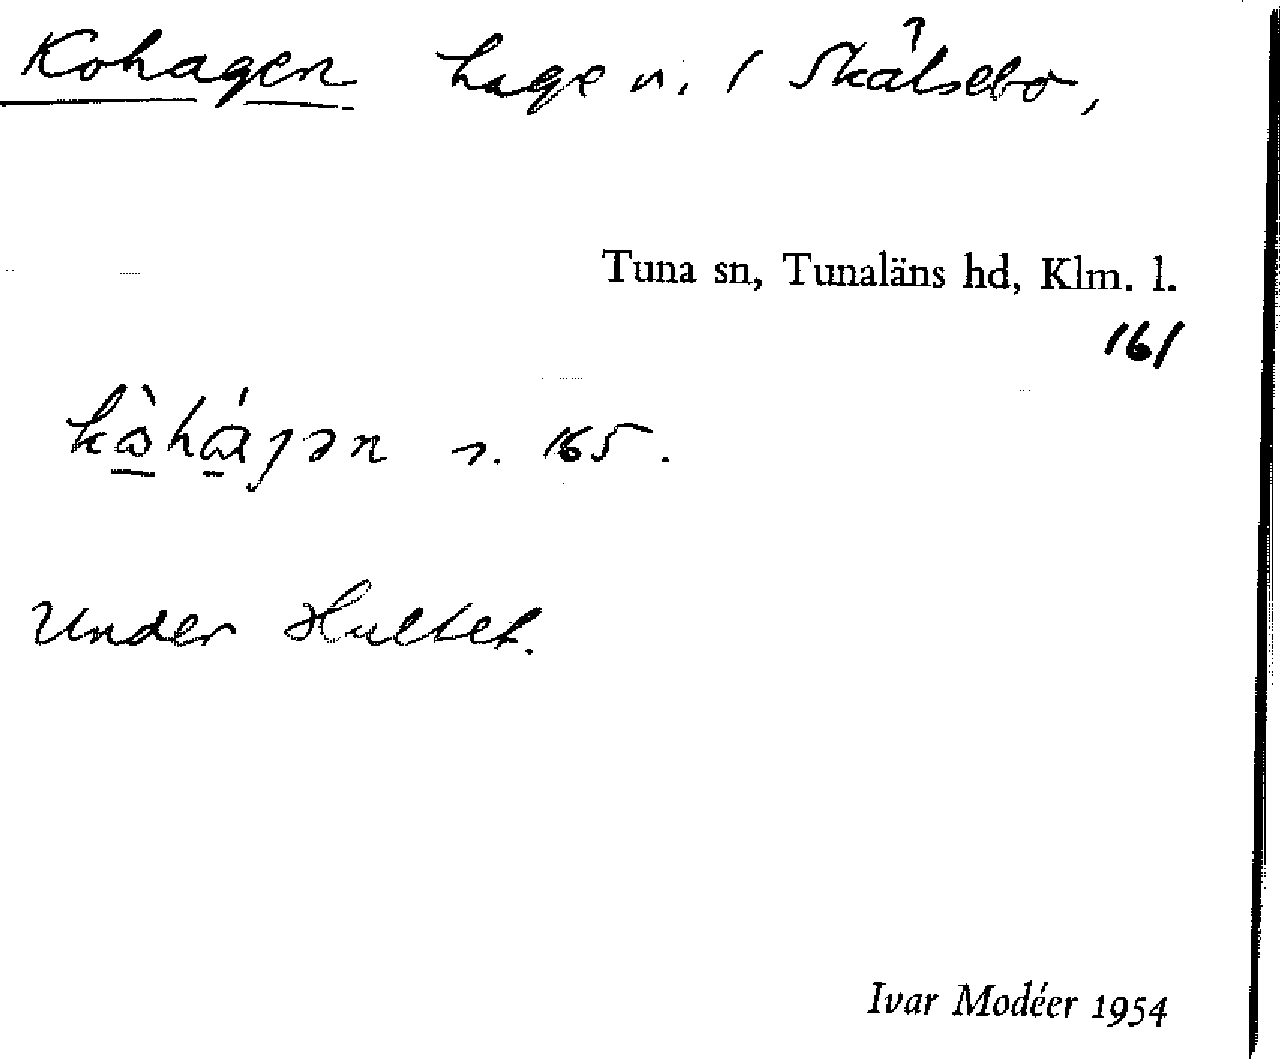 Kohagen hage n. i Skälsebo,
Tuna sn, Tunaläns hd, Klm. l.
161
s. 165.
Under Hultet.
Ivar Modéer 1954